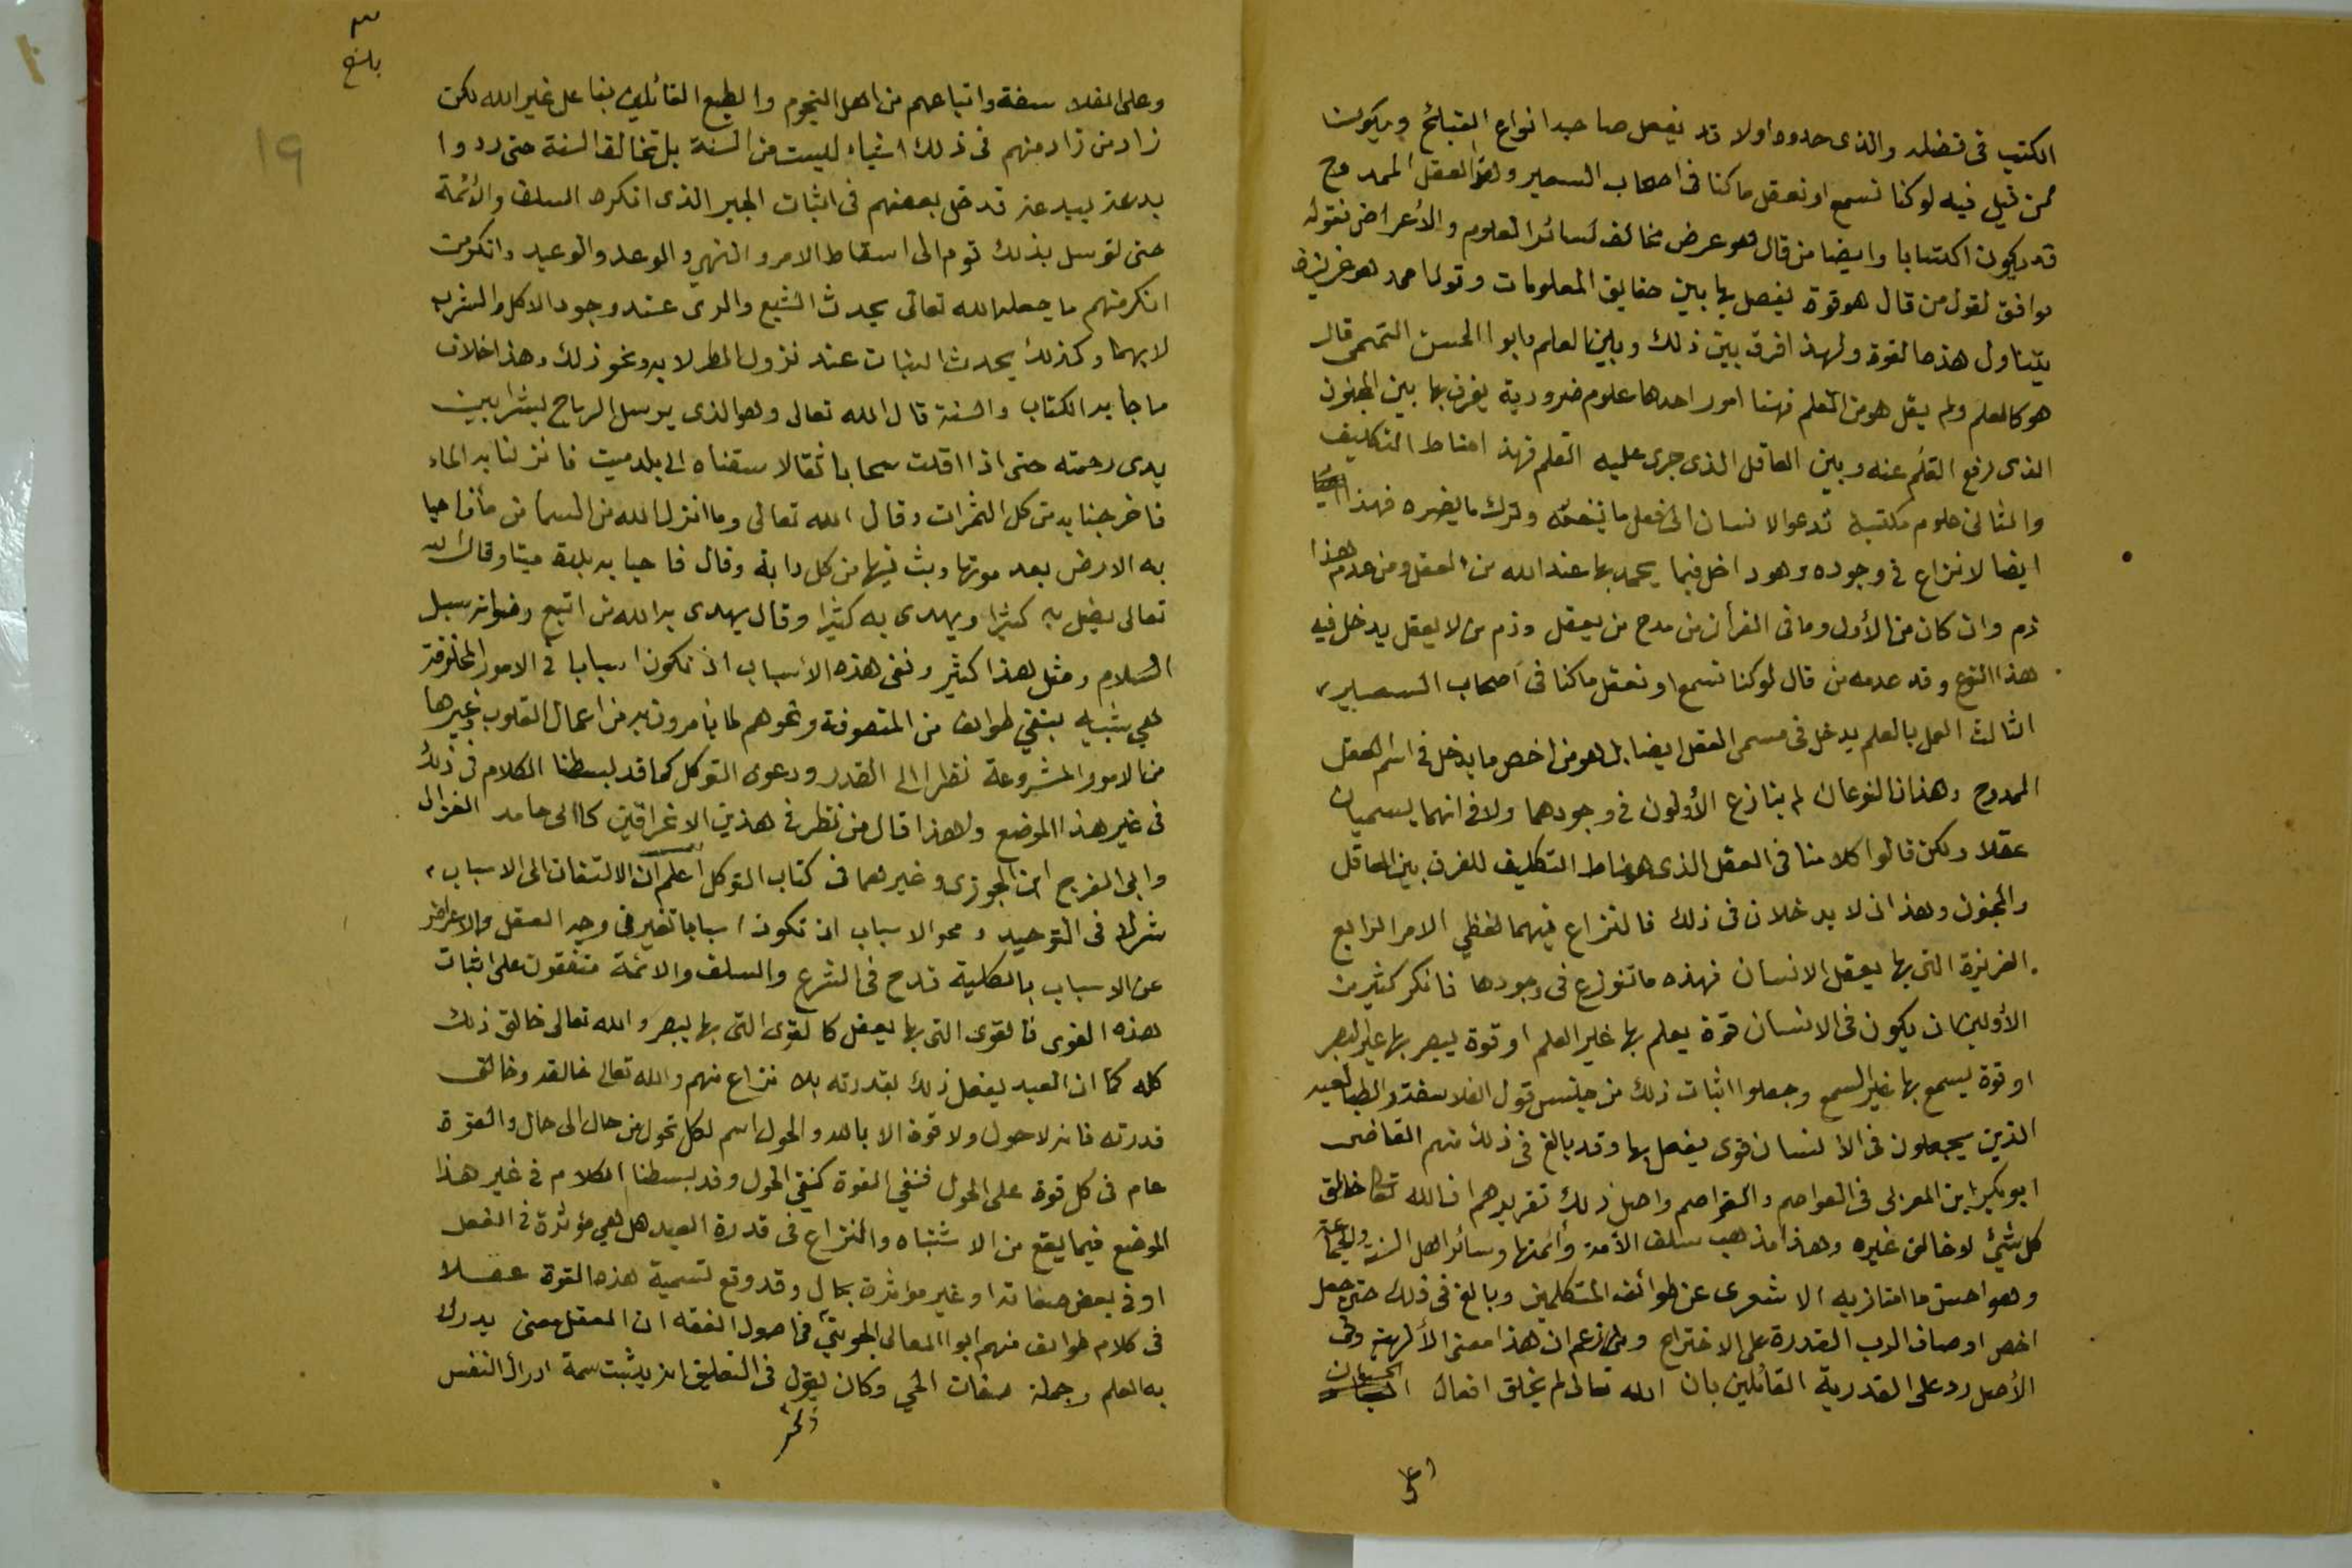 الكتب في فضله والذى حدوه اولا قد يفعل صاحبه انواع القبائح ويكون
ممن قيل فيه لو كنا نسمع او نعقل ما كنا في اصحاب السعير ولفظ العقل الممدوح
قد يكون اكتسابا وايضا من قال هو عرض مخالف لسائر العلوم والأعراض فقوله
موافق لقول من قال هو قوة يفصل بها بين حقايق المعلومات وقول احمد هو غريزة
يتناول هذه القوة ولهذا فرق بين ذلك وبين العلم وابوا الحسن التميمى قال
هو كالعلم ولم يقل هو من العلم فهنا امور احدها علوم ضرورية يفرق بها بين المجنون
الذى رفع القلم عنه وبين العاقل الذى جرى عليه القلم فهذا مناط التكليف
والثانى علوم مكتسبة تدعو الانسان الى فعل ما ينفعه وترك ما يضره فهذا
ايضا لا نزاع في وجوده وهو داخل فيما يحمد بها عند الله من العقل ومن عدم هذا
ذم وان كان من الأول وما في القرأن من مدح من يعقل وذم من لا يعقل يدخل فيه
هذا النوع وقد عدمه من قال لو كنا نسمع او نعقل ما كنا في أصحاب السعير
الثالث العمل بالعلم يدخل في مسمى العقل ايضا بل هو من اخص ما يدخل في اسم العقل
الممدوح وهذان النوعان لم ينازع الأولون في وجودهما ولا في انهما يسميان
عقلا ولكن قالوا كلامنا في العقل الذى هو مناط التكليف للفرق بين العاقل
والمجنون وهذان لا يدخلان في ذلك فالنزاع فيهما لفظي الامر الرابع
الغريزة التى بها يعقل الانسان فهذه ما تنوزع في وجودها فانكر كثير من
الأولين ان يكون في الانسان قوة يعلم بها غير العلم او قوة يبصر بها غير البصر
او قوة يسمع بها غير السمع وجعلوا اثبات ذلك من جنس قول الفلاسفة والطبايعيه
الذين يجعلون في الانسان قوى يفعل بها وقد بالغ في ذلك منهم القاضى
ابو بكر ابن العربى في العواصم والقواصم واصل ذلك تقريرهم ان الله تعالى خالق
كل شئ لا خالق غيره وهذا مذهب سلف الأمة وأئمتها وسائر اهل السنة والجماعة
وهو احسن ما امتاز به الاشعرى عن طوائف المتكلمين وبالغ في ذلك حتى جعل
اخص اوصاف الرب القدرة على الاختراع وزعم ان هذا معنى الألهية وفى
الأصل رد على القدرية القائلين بان الله تعالى لم يخلق افعال الحيوان
وعلى الفلاسفة واتباعهم من اهل النجوم والطبع القائلين بفاعل غير الله لكن
زاد من زاد منهم في ذلك اشياء ليست من السنة بل تخالف السنة حتى ردوا
بدعة ببدعة فدخل بعضهم في اثبات الجبر الذى انكره السلف والأئمة
حتى توسل بذلك قوم الى اسقاط الامر والنهي والوعد والوعيد وانكر من
انكر منهم ما جعله الله تعالى يحدث الشبع والرى عند وجود الاكل والشرب
لا بهما وكذلك يحدث النبات عند نزول المطر لا به ونحو ذلك وهذا خلاف
ما جأ به الكتاب والسنة قال الله تعالى وهو الذى يرسل الرياح بشرا بين
يدى رحمته حتى اذا اقلت سحابا ثقالا سقناه الى بلد ميت فانزلنا به الماء
فاخرجنا به من كل الثمرات وقال الله تعالى وما انزل الله من السما من ماء فاحيا
به الارض بعد موتها وبث فيها من كل دابة وقال فاحيا به بلدة ميتا وقال الله
تعالى يضل به كثيرا ويهدى به كثيرا وقال يهدى به الله من اتبع رضوانه سبل
السلام ومثل هذا كثير ونفى هذه الأسباب ان تكون اسبابا في الامور المخلوقة
هي شبيه بنفي طوائف من المتصوفة ونحوهم لما يأمرون به من اعمال القلوب وغيرها
من الامور المشروعة نظرا الى القدر ودعوى التوكل كما قد بسطنا الكلام في ذلك
في غير هذا الموضع ولهذا قال من نظر في هذين الاغراقين كابى حامد الغزالى
وابى الفرج ابن الجوزى وغيرهما في كتاب التوكل أعلم أن الالتفات الى الاسباب
شرك في التوحيد ومحو الاسباب ان تكون اسبابا تغير في وجه العقل والاعراض
عن الاسباب بالكلية قدح في الشرع والسلف والائمة متفقون على اثبات
هذه القوى فالقوى التى بها يعقل كالقوى التى بها يبصر والله تعالى خالق ذلك
كله كما ان العبد يفعل ذلك بقدرته بلا نزاع منهم والله تعالى خالقه وخالق
قدرته فانه لا حول ولا قوة الا بالله والحول اسم لكل تحول من حال الى حال والقوة
عام في كل قوة على الحول فنفي القوة كنفي الحول وقد بسطنا الكلام في غير هذا
الموضع فيما يقع من الاشتباه والنزاع في قدرة العبد هل هي مؤثرة في الفعل
او في بعض صفاته او غير مؤثرة بحال وقد وقع تسمية هذه القوة عقلا
في كلام طوائف منهم ابوا المعالى الجوينى في اصول الفقه ان العقل معنى يدرك
به العلم وجملة صفات الحي وكان يقول في التعليق انه يثبت سمة ادراك النفس
بلغ
19